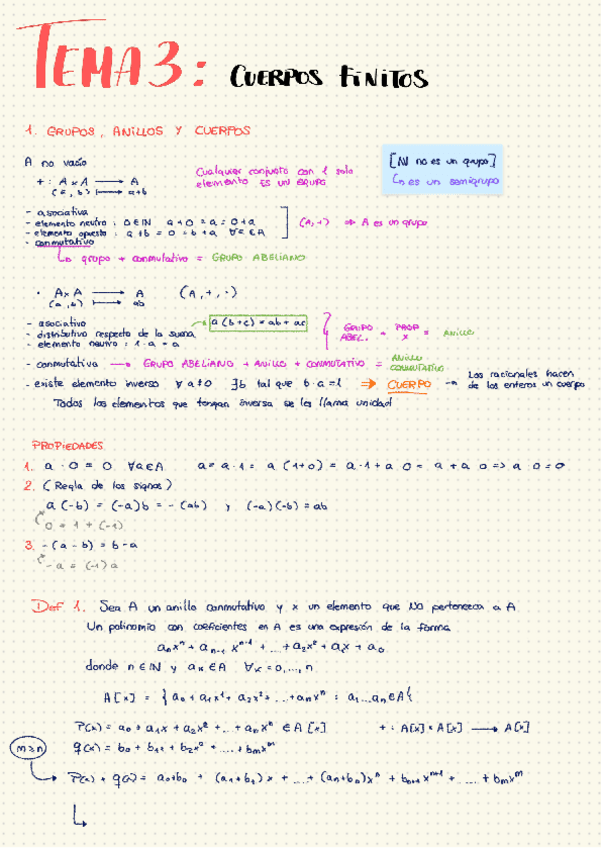 TEMA 3: CUERPOS FINITOS
1. GRUPOS, ANILLOS Y CUERPOS
A no vacío
+ : A x A ⟶ A
(a, b) ⟼ a+b
Cualquier conjunto con 1 solo
elemento ES UN GRUPO
[ℕ no es un grupo]
↳ es un semigrupo
- asociativa
- elemento neutro : 0 ∈ ℕ a + 0 = a = 0 + a
- elemento opuesto : a + b = 0 = b + a ∀ a ∈ A
- conmutativo
(A, +) ⇒ A es un grupo
↳ grupo + conmutativo = GRUPO ABELIANO
· A x A ⟶ A (A, +, ·)
(a, b) ⟼ ab
- asociativo
- distributivo respecto de la suma → a (b + c) = ab + ac
elemento neutro : 1 · a = a
GRUPO ABEL. + PROP x = ANILLO
- conmutativa ⟶ GRUPO ABELIANO + ANILLO + CONMUTATIVO = ANILLO CONMUTATIVO
- existe elemento inverso ∀ a ≠ 0 ∃ b tal que b · a = 1 ⇒ CUERPO → Los racionales hacen
de los enteros un cuerpo
Todos los elementos que tengan inversa se les llama unidad
PROPIEDADES
1. a · 0 = 0 ∀ a ∈ A a = a · 1 = a (1 + 0) = a · 1 + a 0 = a + a 0 ⇒ a 0 = 0
2. (Regla de los signos)
a (-b) = (-a) b = - (ab) y (-a)(-b) = ab
0 = 1 + (-1)
3. - (a - b) = b - a
- a = (-1) a
Def 1. Sea A un anillo conmutativo y x un elemento que NO pertenezca a A
Un polinomio con coeficientes en A es una expresión de la forma
aₙxⁿ + aₙ₋₁ xⁿ⁻¹ + ... + a₂x² + a₁x + a₀
donde n ∈ ℕ y aₖ ∈ A ∀ k = 0, ..., n
A [x] = { a₀ + a₁x¹ + a₂x² + ... + aₙxⁿ : a₁ ... aₙ ∈ A }
P(x) = a₀ + a₁x + a₂x² + ... + aₙxⁿ ∈ A [x] + : A[x] x A[x] ⟶ A[x]
m ≥ n q(x) = b₀ + b₁x + b₂x² + .... + bₘxᵐ
P(x) + q(x) = a₀+b₀ + (a₁+b₁) x + ... + (aₙ+bₙ)xⁿ + bₙ₊₁ xⁿ⁺¹ + .... + bₘxᵐ